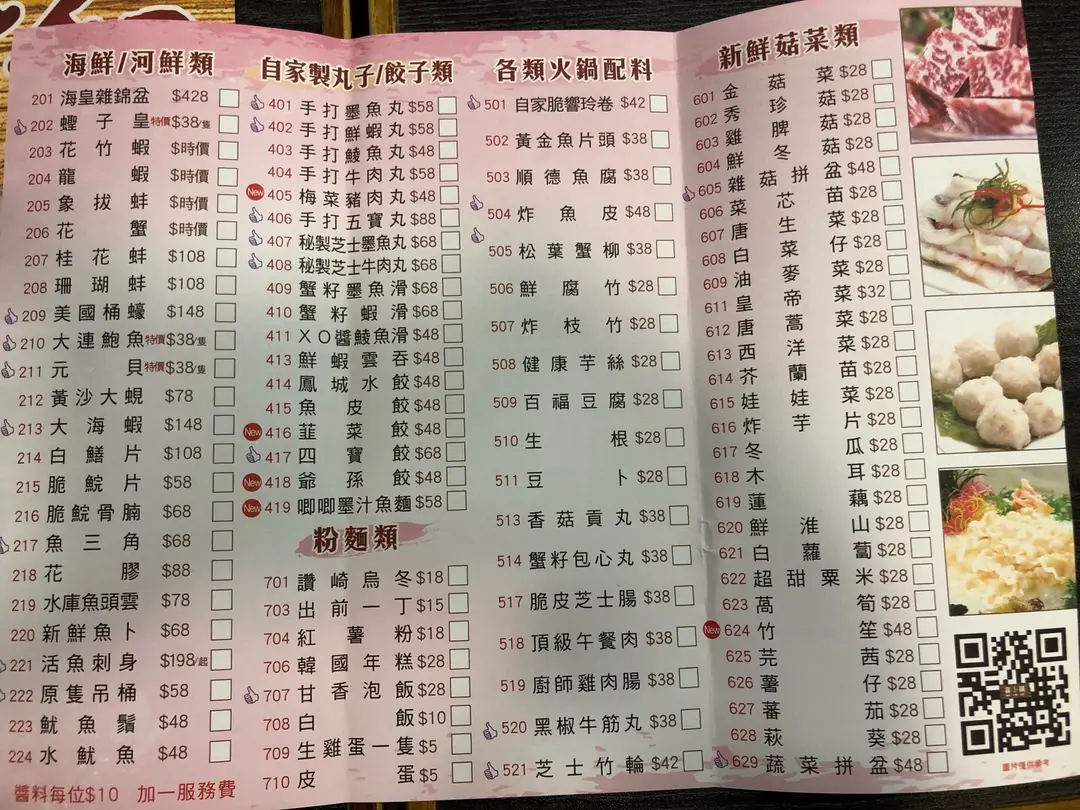 海鮮/河鮮類
201 海皇雜錦盆 $428
202 螲子皇 特價$38/隻
203 花竹蝦 $時價
204 龍蝦 $時價
205 象拔蚌 $時價
206 花蟹 $時價
207 桂花蚌 $108
208 珊瑚蚌 $108
209 美國桶蠔 $148
210 大連鮑魚 特價$38/隻
211 元貝 特價$38/隻
212 黃沙大蜆 $78
213 大海蝦 $148
214 白鱔片 $108
215 脆鯇片 $58
216 脆鯇骨腩 $68
217 魚三角 $68
218 花膠 $88
219 水庫魚頭雲 $78
220 新鮮魚卜 $68
221 活魚刺身 $198/起
222 原隻吊桶 $58
223 魷魚鬚 $48
224 水魷魚 $48
醬料每位$10 加一服務費
自家製丸子/餃子類
401 手打墨魚丸 $58
402 手打鮮蝦丸 $58
403 手打鯪魚丸 $48
404 手打牛肉丸 $58
New 405 梅菜豬肉丸 $48
406 手打五寶丸 $88
407 秘製芝士墨魚丸 $68
408 秘製芝士牛肉丸 $68
409 蟹籽墨魚滑 $68
410 蟹籽蝦滑 $68
411 XO醬鯪魚滑 $48
413 鮮蝦雲吞 $48
414 鳳城水餃 $48
415 魚皮餃 $48
New 416 韮菜餃 $48
417 四寶餃 $68
New 418 爺孫餃 $48
New 419 唧唧墨汁魚麵 $58
粉麵類
701 讚崎烏冬 $18
703 出前一丁 $15
704 紅薯粉 $18
706 韓國年糕 $28
707 甘香泡飯 $28
708 白飯 $10
709 生雞蛋一隻 $5
710 皮蛋 $5
各類火鍋配料
501 自家脆響玲卷 $42
502 黃金魚片頭 $38
503 順德魚腐 $38
504 炸魚皮 $48
505 松葉蟹柳 $38
506 鮮腐竹 $28
507 炸枝竹 $28
508 健康芋絲 $28
509 百福豆腐 $28
510 生根 $28
511 豆卜 $28
513 香菇貢丸 $38
514 蟹籽包心丸 $38
517 脆皮芝士腸 $38
518 頂級午餐肉 $38
519 廚師雞肉腸 $38
520 黑椒牛筋丸 $38
521 芝士竹輪 $42
新鮮菇菜類
601 金菇菜 $28
602 秀珍菇 $28
603 雞脾菇 $28
604 鮮冬菇 $28
605 雜菇拼盆 $48
606 菜芯苗 $28
607 唐生菜 $28
608 白菜仔 $28
609 油麥菜 $28
611 皇帝菜 $32
612 唐蒿菜 $28
613 西洋菜 $28
614 芥蘭苗 $28
615 娃娃菜 $28
616 炸芋片 $28
617 冬瓜 $28
618 木耳 $28
619 蓮藕 $28
620 鮮淮山 $28
621 白蘿蔔 $28
622 超甜粟米 $28
623 萵筍 $28
New 624 竹笙 $48
625 芫茜 $28
626 薯仔 $28
627 蕃茄 $28
628 萩葵 $28
629 蔬菜拼盆 $48
圖片僅供參考